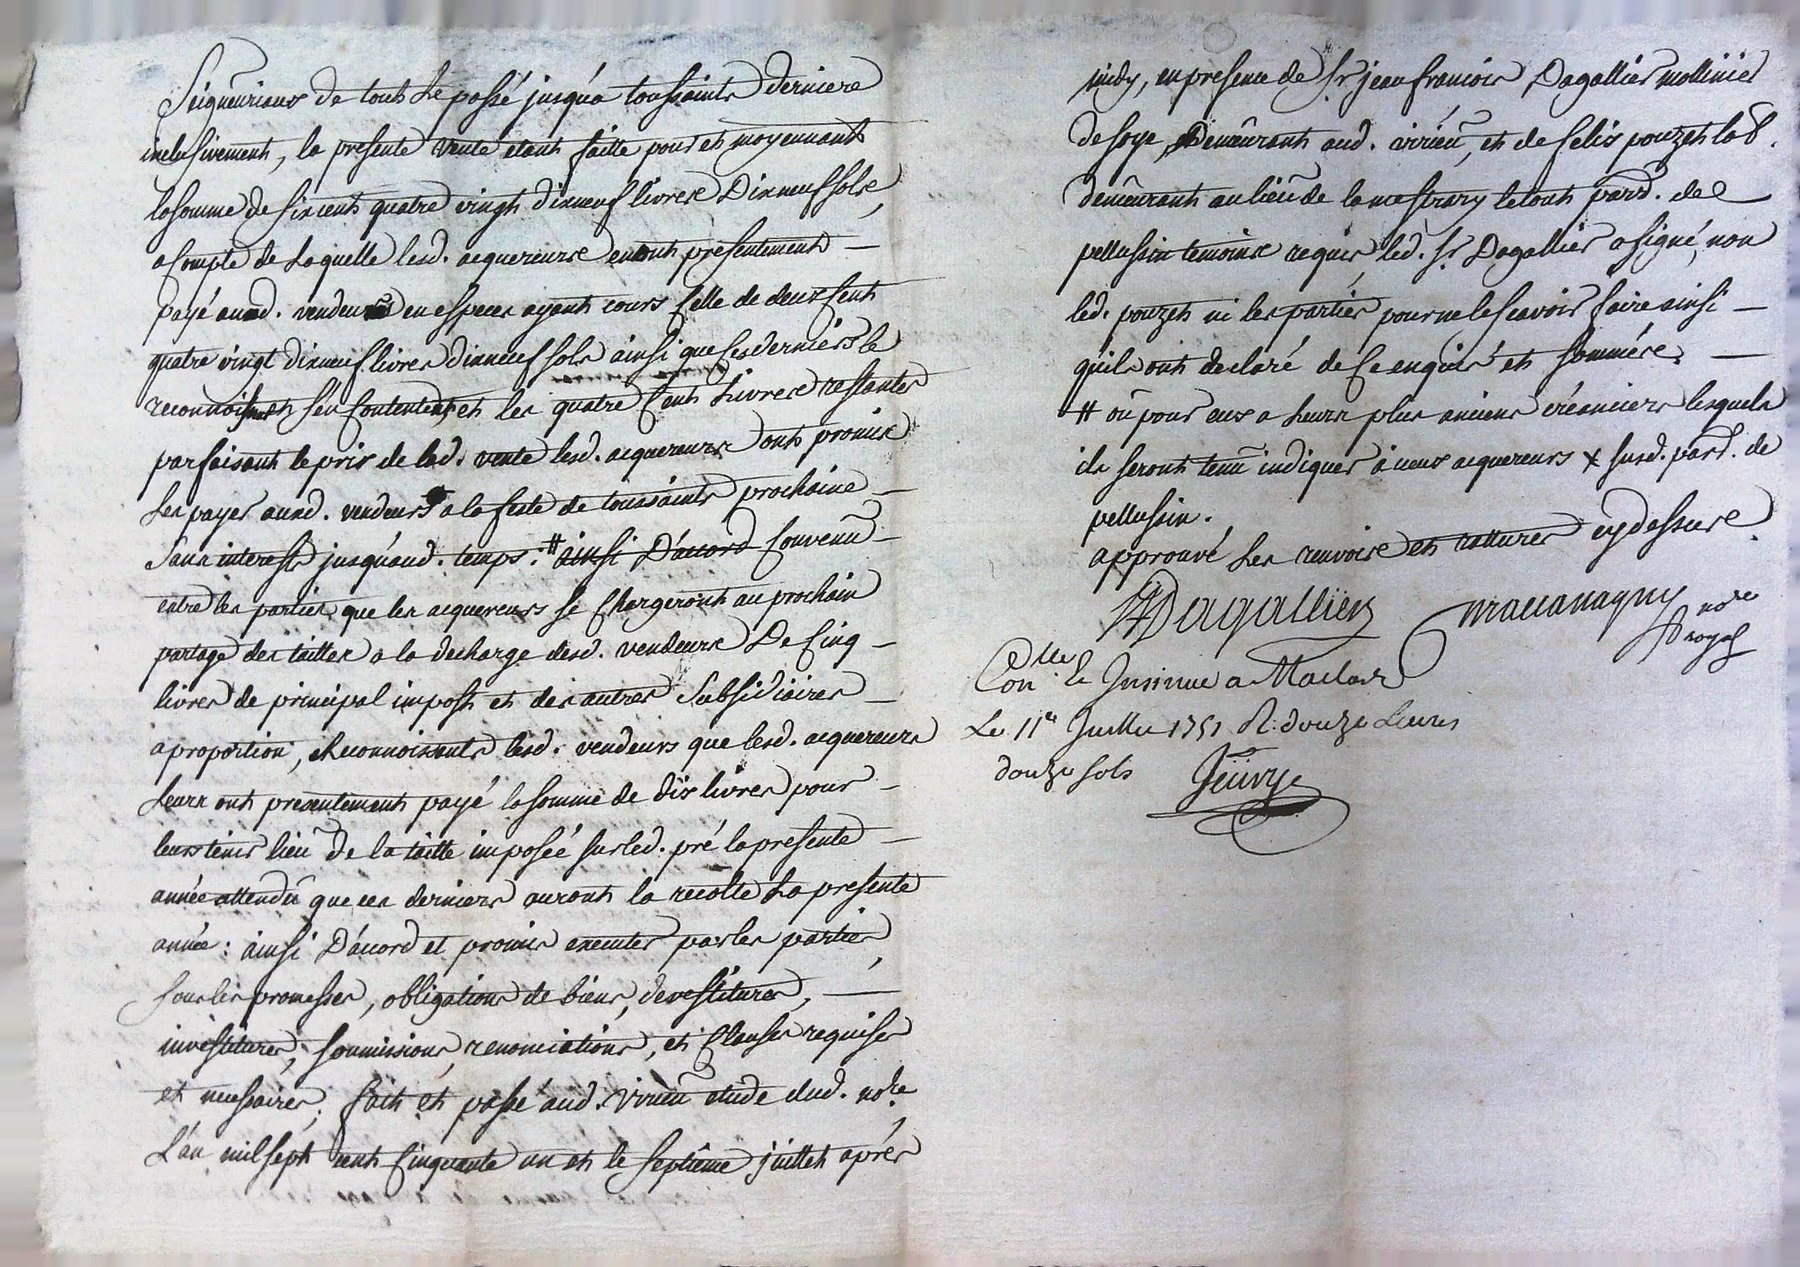 Seigneuriaux de tout le passé jusqu'a toussaints derniere
inclusivement, la presente vente etant faitte pour et moyennant
la somme de six cent quatre vingt dixneuf livres dixneuf sols,
a compte de laquelle lesd. acquereurs en ont presentement
payé auxd. vendeurs en especes ayant cours celle de deux cent
quatre vingt dixneuf livres dixneuf sols ainsi que ces derniers le
reconnoissent s'en contentent, et les quatre cent livres restantes
parfaisant le prix de lad. vente lesd. acquereurs ont promis
les payer auxd. vendeurs a la feste de toussaints prochaine
sans interests jusqu'aud. temps : # ainsi d'accord convenu
entre les parties que les acquereurs se chargeront au prochain
partage des tailles a la decharge desd. vendeurs de cinq
livres de principal impost et des autres subsidiaires
a proportion, reconnoissants lesd. vendeurs que lesd. acquereurs
leurs ont presentement payé la somme de dix livres pour
leurs tenir lieu de la taille imposée sur led. pré la presente
année attendu que ces derniers auront la recolte la presente
année : ainsi d'accord et promis executer par les parties,
sous les promesses, obligations de biens, devestitures,
investitures, soumissions, renonciations, et clauses requises
et necessaires, fait et passé aud. virieu etude dud. nore
l'an mil sept cent cinquante un et le septième juillet aprés
midy, en presence de sr. jean francois Dagallier mollinier
de soye, demeurant aud. virieu, et de felix pouzet lab.
demeurant au lieu de le tout parr. de
pellussin temoins requis, led. sr. Dagallier a signé, non
led. pouzet ni les parties pour ne le scavoir faire ainsi
qu'ils ont declaré de ce enquis et sommés.
# ou pour eux a leurs plus anciens créanciers lesquels
ils seront tenu indiquer à iceux acquereurs x susd. parr. de
pellussin.
approuvé les renvois et rattures cy dessus.
Dagallier nore
royal
Conlle. et Insinué a Maclas
Le 11e Juillet 1751 R. douze Livres
douze sols